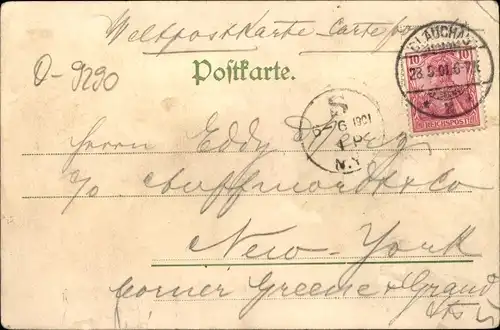 Weltpostkarte - Carte postale
GLAUCHAU
28.5.01.6-7
10 10
REICHSPOST
O-9290
Postkarte.
S
6-7G 1901
2 P
N.Y.
Herrn Eddy
c/o & Co
New-York
corner Greene & Grand
Sts